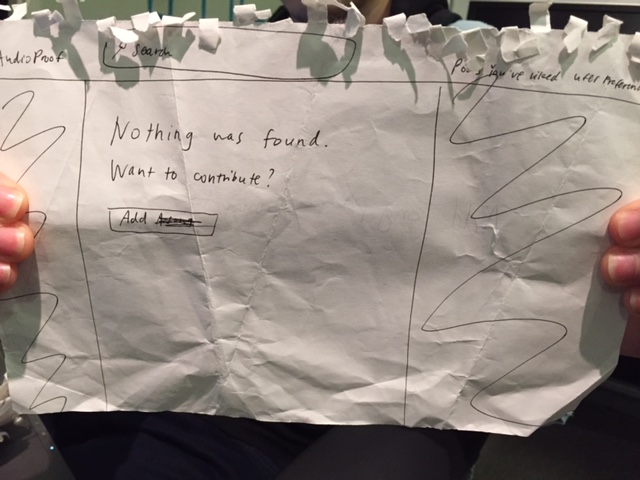 AudioProof
Search
you've liked user Preferen
Nothing was found.
Want to contribute?
Add